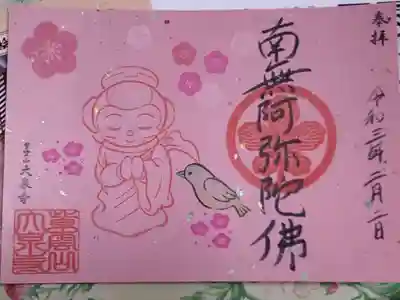 奉拝
令和三年二月二日
南無阿弥陀佛
大泉寺